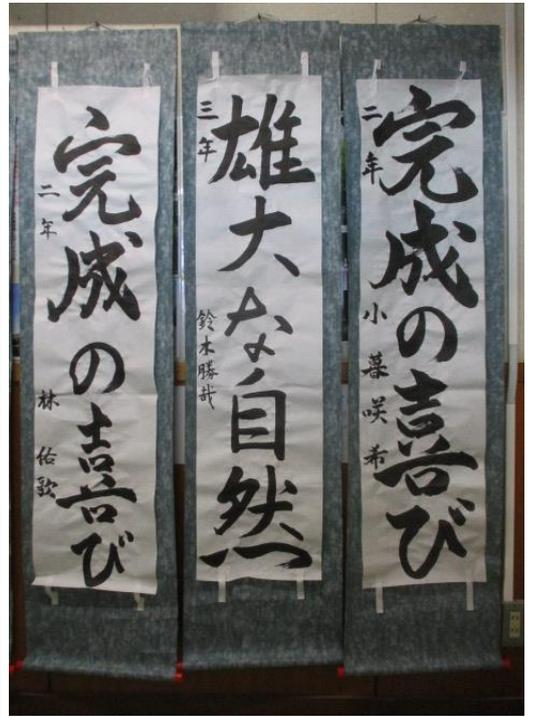 完成の喜び
二年 小暮咲希
雄大な自然
三年 鈴木勝哉
完成の喜び
二年 林佑歌